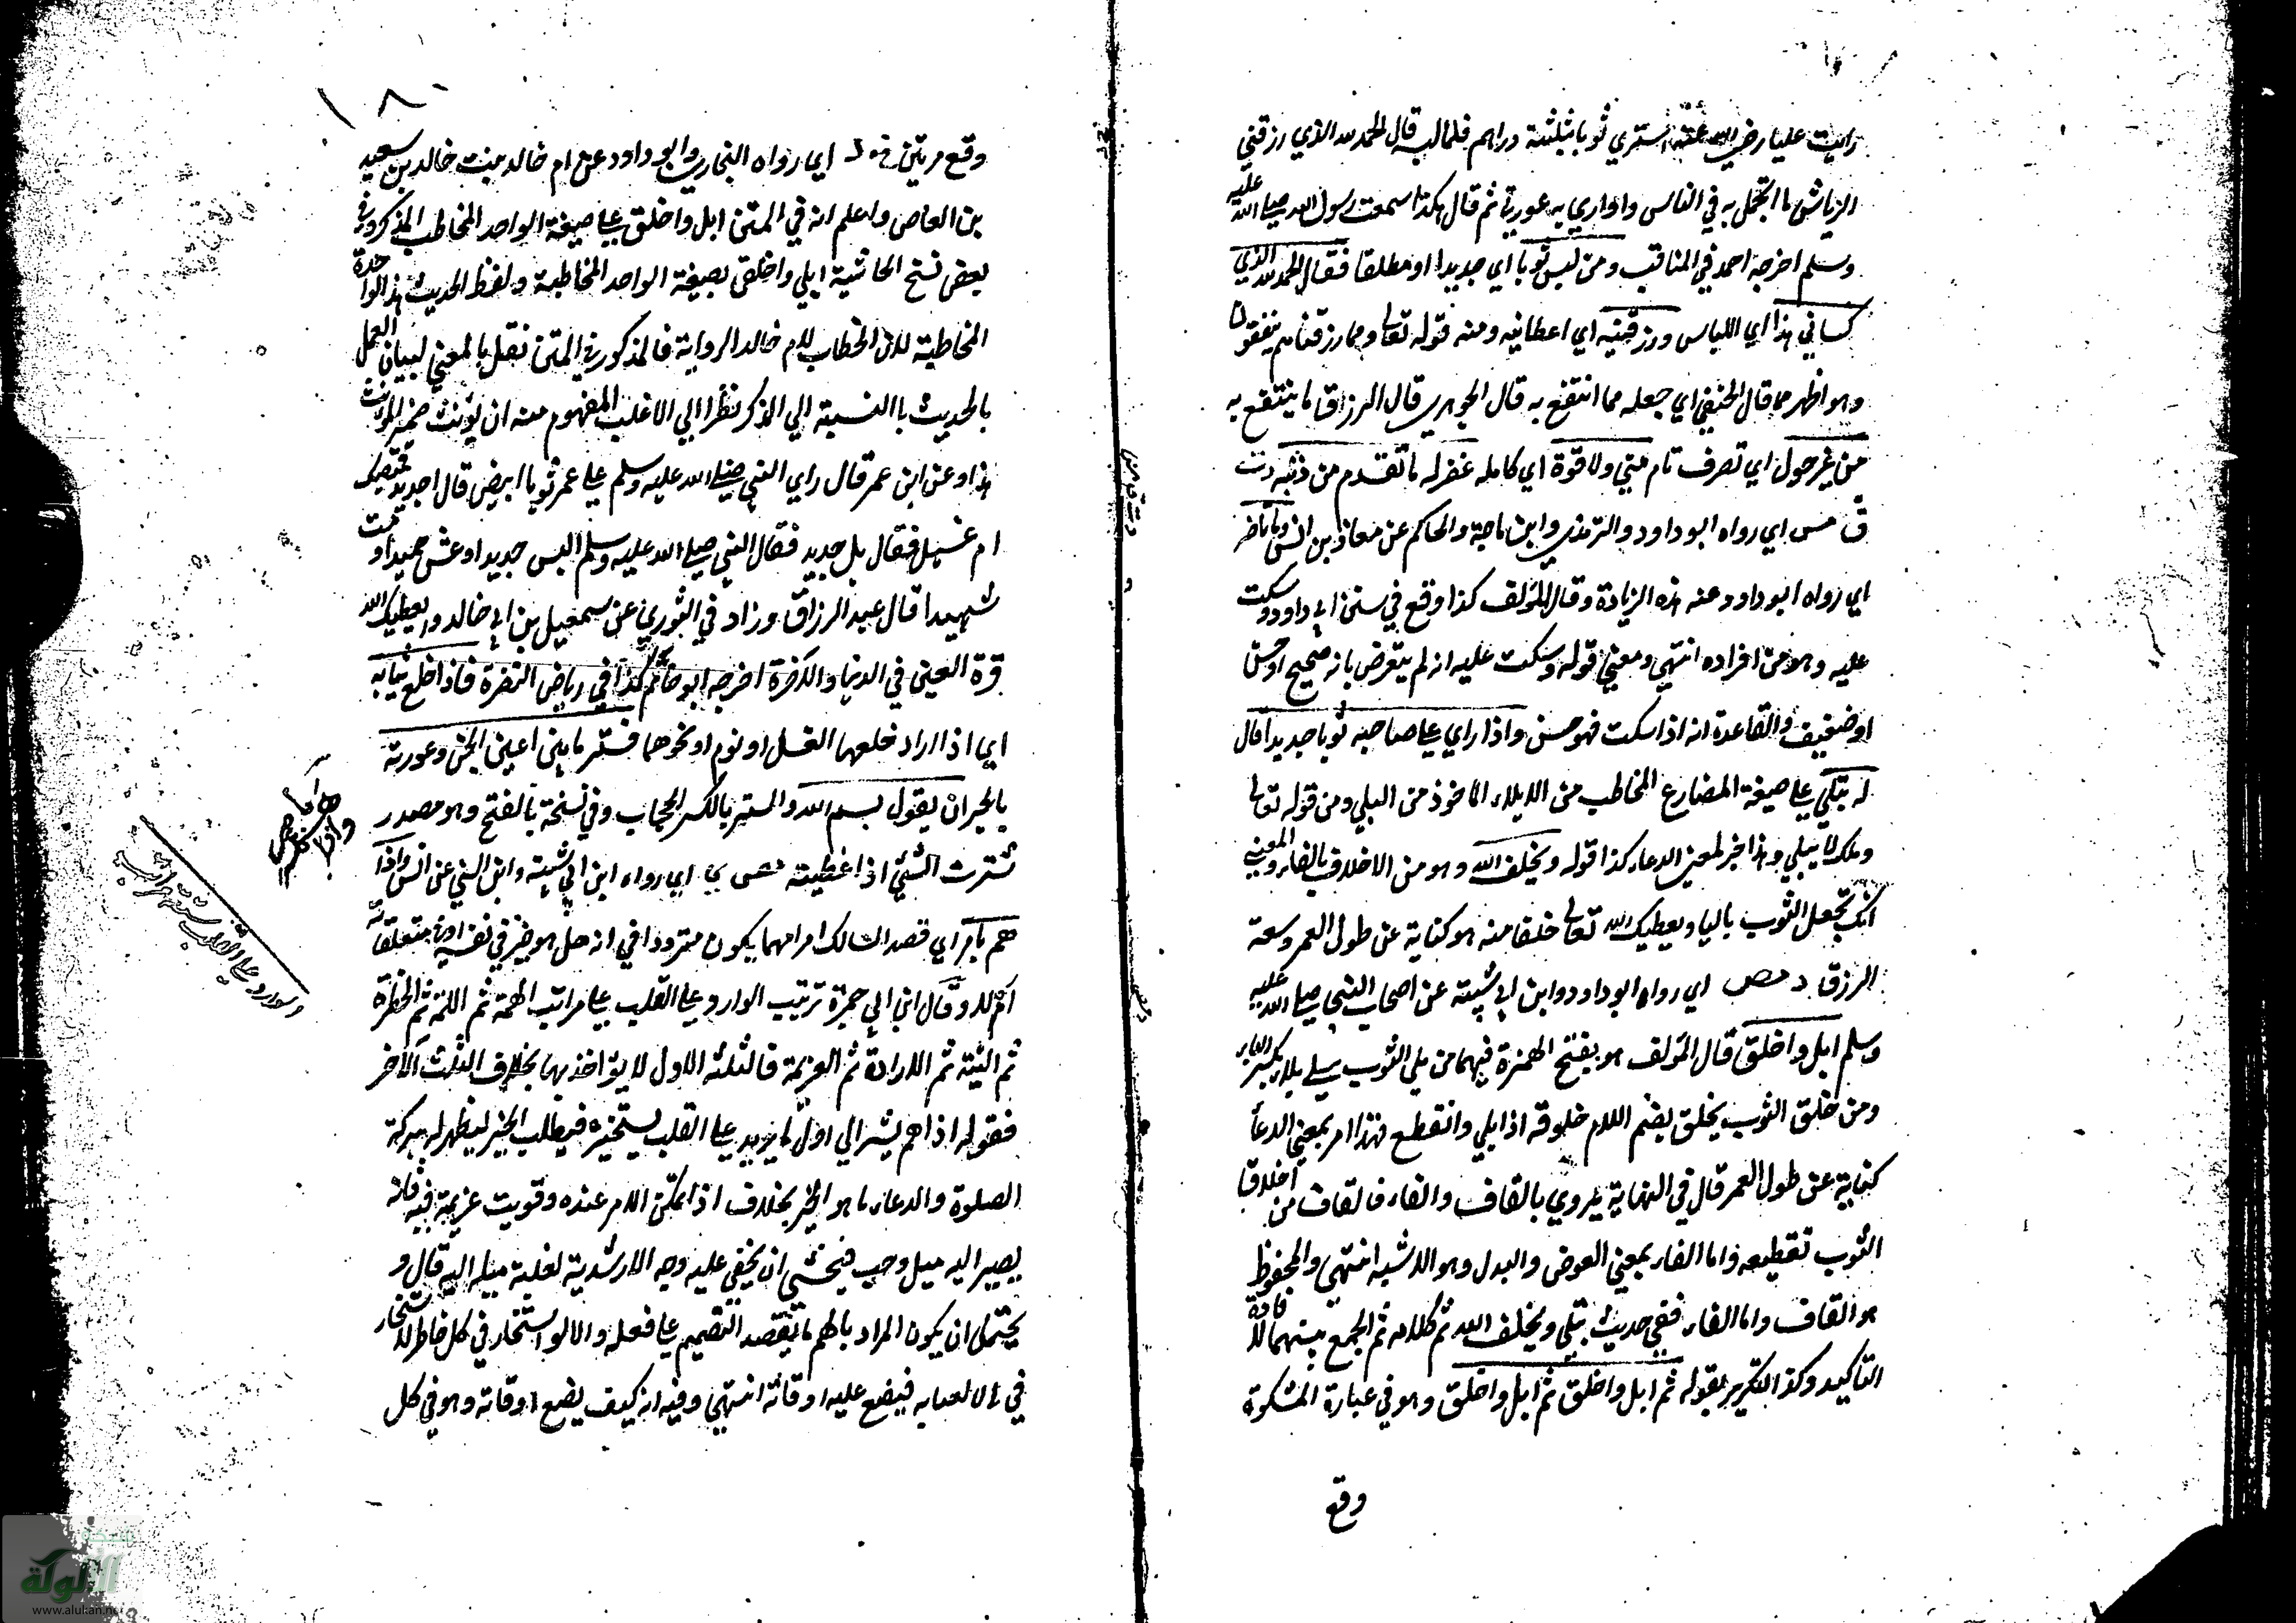 رايت عليا رضي الله عنه اشتري ثوبا بثلثة دراهم فلما لبسه قال الحمد لله الذي رزقني
الرياش ما اتجمل به في الناس واواري به عورتي ثم قال هكذا سمعت رسول الله صلي الله عليه
وسلم اخرجه احمد في المناقب ومن لبس ثوبا اي جديدا او مطلقا فقال الحمد لله الذي
كساني هذا اي اللباس ورزقنيه اي اعطانيه ومنه قوله تعالي ومما رزقناهم ينفقون
وهو اظهر مما قال الحنفي اي جعله مما انتفع به قال الجوهري قال الرزاق ما ينتفع به
من غير حول اي تصرف تام مني ولا قوة اي كاملة غفر له ما تقدم من ذنبه دت
ق مس اي رواه ابو داود والترمذي وابن ماجة والحاكم عن معاذ بن انس وما تاخر
اي رواه ابو داود عنه هذه الزيادة وقال المؤلف كذا وقع في سنن ابي داود وسكت
عليه وهو من افراده انتهي ومعني قوله وسكت عليه انه لم يتعرض بانه صحيح او حسن
او ضعيف والقاعدة انه اذا سكت فهو حسن واذا راي علي صاحبه ثوبا جديدا قال
له تبلي علي صيغة المضارع المخاطب من الابلاء الماخوذ من البلي ومن قوله تعالي
وملك لا يبلي وهذا خبر لمعني الدعاء كذا قوله ويخلف الله وهو من الاخلاف بالفاء والمعني
انك تجعل الثوب باليا ويعطيك الله تعالي خلفا منه هو كناية عن طول العمر وسعة
الرزق د مص اي رواه ابو داود وابن ابي شيبة عن اصحاب النبي صلي الله عليه
وسلم ابل واخلق قال المؤلف هو بفتح الهمزة فيهما من بلي الثوب يبلي بلاء بكسر الباء
ومن خلق الثوب يخلق بضم اللام خلوقة اذا بلي وانقطع فهذا امر بمعني الدعا
كناية عن طول العمر قال في النهاية يروي بالقاف والفاء فالقاف من اخلاق
الثوب تقطيعه واما الفاء بمعني العوض والبدل وهو الاشبه انتهي والمحفوظ
هو القاف واما الفاء ففي حديث تبلي ويخلف الله ثم كلامه ثم الجمع بينهما لافادة
التاكيد وكذا التكرير بقوله ثم ابل واخلق ثم ابل واخلق وهو في عبارة المشكوة
وقع
١٨٠
وقع مرتين خ د اي رواه البخاري وابو داود عن ام خالد بنت خالد بن سعيد
بن العاص واعلم انه في المتن ابل واخلق علي صيغة الواحد المخاطب المذكر وفي
بعض نسخ الحاشية ابلي واخلقي بصيغة الواحد المخاطبة ولفظ الحديث هذا الواحدة
المخاطبة لان الخطاب لام خالد الرواية فالمذكور في المتن نقل بالمعني لبيان العمل
بالحديث بالنسبة الي الذكر نظرا الي الاغلب المفهوم منه ان يؤنث ضمير المؤنث
هذا وعن ابن عمر قال راي النبي صلي الله عليه وسلم علي عمر ثوبا ابيض قال اجديد قميصك
ام غسيل فقال بل جديد فقال النبي صلي الله عليه وسلم البس جديدا وعش حميدا ومت
شهيدا قال عبد الرزاق وزاد في الثوري عن اسمعيل بن ابي خالد ويعطيك الله
قرة العين في الدنيا والاخرة اخرجه ابو حاتم كذا في رياض النضرة فاذا خلع ثيابه
اي اذا اراد خلعها الغسل او نوم او نحوهما فستر ما بين اعين الجن وعورته
بالخبر ان يقول بسم الله والستر بالكسر الحجاب وفي نسخة بالفتح وهو مصدر
سترت الشئ اذا غطيته مص ي اي رواه ابن ابي شيبة وابن السني عن انس واذا
هم بامر اي قصد السالك امرا مهما يكون مترددا في انه هل هو خير في نفسه
ام لا وقال ابن ابي جمرة ترتيب الوارد علي القلب علي مراتب الهمة ثم اللمة ثم الخطرة
ثم النية ثم الارادة ثم العزيمة فالثلثة الاول لا يؤاخذ بها بخلاف الثلث الاخر
فقوله اذا هم يشر الي اول ما يريد علي القلب يستخيره فيطلب الخير ليظهر له ببركة
الصلوة والدعاء ما هو الخير بخلاف اذا تمكن الامر عنده وقويت عزيمته فيه فانه
يصير اليه ميل وحب فيخشي ان يخفي عليه وجه الارشدية لغلبة ميله اليه قال و
يحتمل ان يكون المراد بالهم ما يقصد التصميم علي فعله والا لو استخار في كل خاطر لاستخار
في ما لا يعبا به فيضع عليه اوقاته انتهي وفيه انه كيف يضع اوقاته وهو في كل
الوارد علي القلب ستة مراتب
الألوكة
www.alukah.net